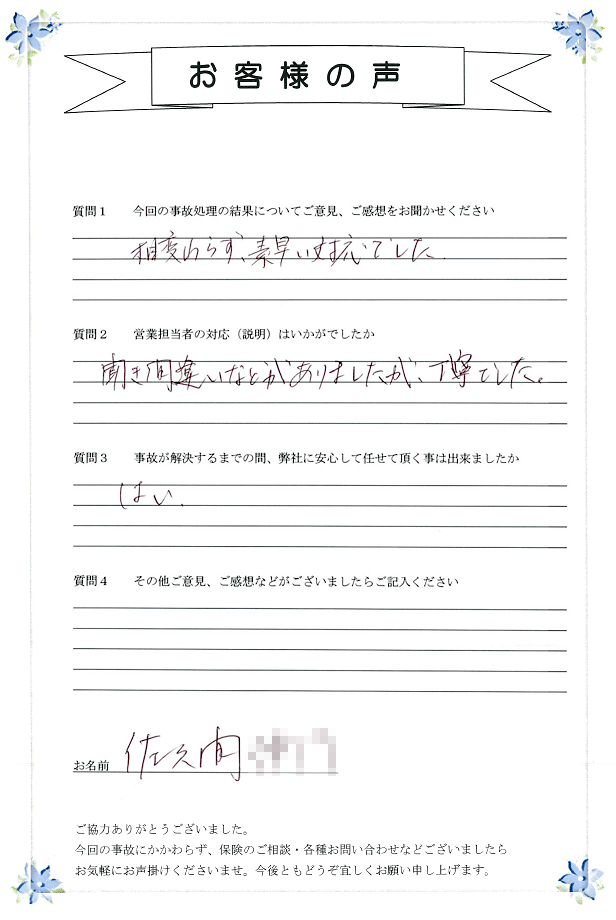 お客様の声
質問1 今回の事故処理の結果についてご意見、ご感想をお聞かせください
相変わらず、素早い対応でした.
質問2 営業担当者の対応（説明）はいかがでしたか
聞き間違いなどがありましたが、丁寧でした。
質問3 事故が解決するまでの間、弊社に安心して任せて頂く事は出来ましたか
はい.
質問4 その他ご意見、ご感想などがございましたらご記入ください
お名前 佐久間
ご協力ありがとうございました。
今回の事故にかかわらず、保険のご相談・各種お問い合わせなどございましたら
お気軽にお声掛けくださいませ。今後ともどうぞ宜しくお願い申し上げます。